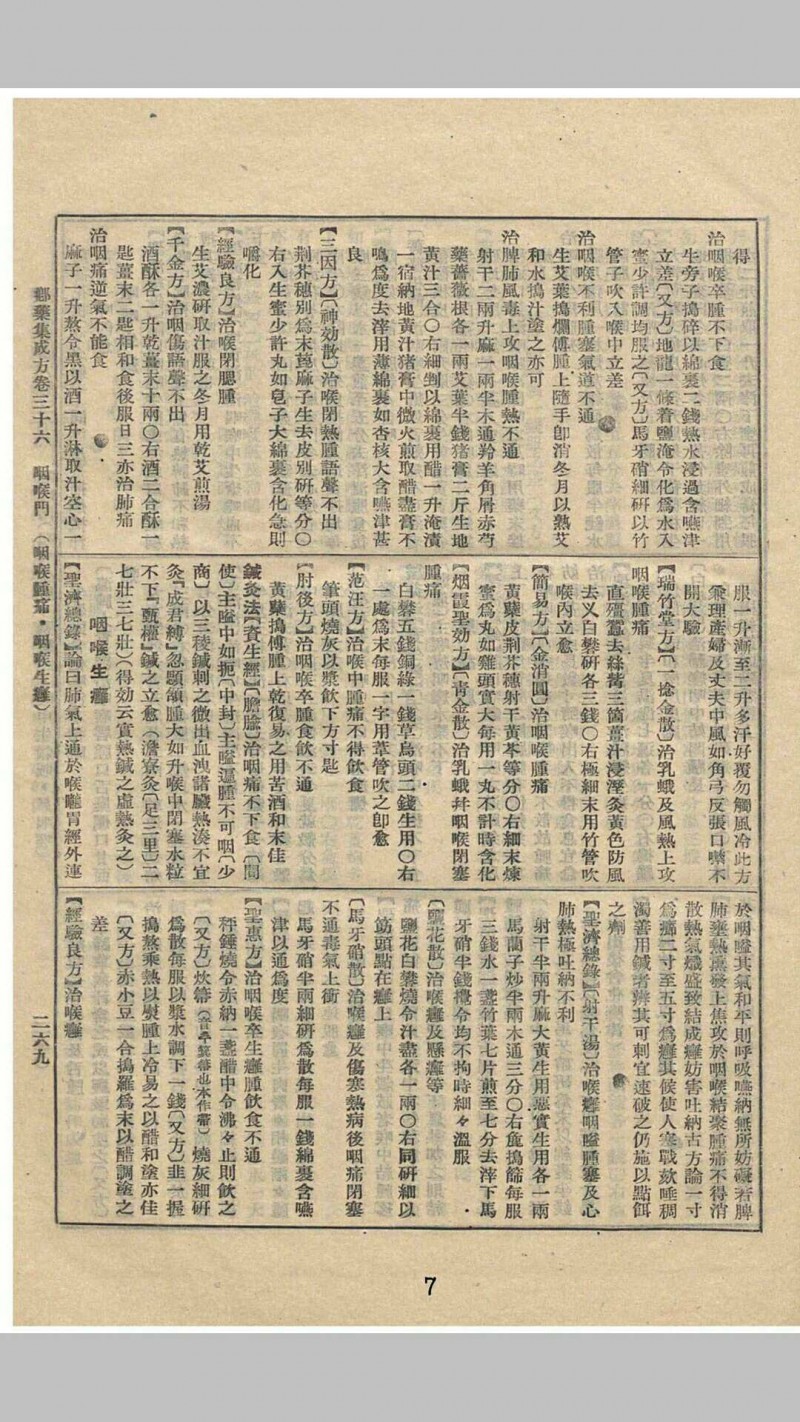 得
治咽喉卒腫不下食
生旁子搗碎以綿裹二錢熱水浸過含嚥津
立差〔又方〕地龍一條着鹽淹令化爲水入
蜜少許調均服之〔又方〕馬牙硝細硏以竹
管子吹入喉中立差
治咽喉不利腫塞氣道不通
生艾葉搗爛傅腫上隨手卽消冬月以熟艾
和水搗汁塗之亦可
治脾肺風毒上攻咽喉腫熱不通
射干二兩升麻一兩半木通羚羊角屑赤芍
藥薔薇根各一兩艾葉半錢猪膏二斤生地
黃汁三合〇右細剉以綿裹用醋一升淹漬
一宿納地黃汁猪膏中微火煎取醋盡膏不
鳴爲度去滓用薄綿裹如杏核大含嚥津甚
良
【三因方】〔神効散〕治喉閉熱腫語聲不出
荆芥穗別爲末萆麻子生去皮別硏等分〇
右入生蜜少許丸如皂子大綿裹含化急則
嚼化
【經驗良方】治喉閉腮腫
生艾濃硏取汁服之冬月用乾艾煎湯
【千金方】治咽傷語聲不出
酒酥各一升乾薑末十兩〇右酒二合酥一
匙薑末二匙相和食後服日三亦治肺痛
治咽痛逆氣不能食
麻子一升熬令黑以酒一升淋取汁空心一
服一升漸至二升多汗好覆勿觸風冷此方
兼理產婦及丈夫中風如角弓反張口噤不
開大驗
【瑞竹堂方】〔一捻金散〕治乳蛾及風熱上攻
咽喉腫痛
直殭蠶去絲觜三箇薑汁浸溼灸黃色防風
去叉白礬硏各三錢〇右極細末用竹管吹
喉內立愈
【簡易方】〔金消圓〕治咽喉腫痛
黃蘗皮荆芥穗射干黃芩等分〇右細末煉
蜜爲丸如雞頭實大每用一丸不計時含化
【烟霞聖効方】〔靑金散〕治乳蛾幷咽喉閉塞
腫痛
白礬五錢銅綠一錢草烏頭二錢生用〇右
一處爲末每服一字用葦管吹之卽愈
【范汪方】治喉中腫痛不得飮食
筆頭燒灰以漿飮下方寸匙
【肘後方】治咽喉卒腫食飮不通
黃蘗搗傅腫上乾復易之用苦酒和末佳
鍼灸法【資生經】〔膽膽〕治咽痛不下食〔間
使〕主嗌中如扼〔中封〕主嗌逼腫不可咽〔少
商〕以三稜鍼刺之微出血洩諸臟熱湊不宜
灸『成君縛』忽頤頷腫大如升喉中閉塞水粒
不下『甄權』鍼之立愈（澹寮灸〔足三里〕二
七壯三七壯）（得効云實熱鍼之虛熱灸之）
咽喉生癰
【聖濟總錄】論曰肺氣上通於喉嚨胃經外連
於咽嗌其氣和平則呼吸嚥納無所妨礙若脾
肺壅熱熏發上焦攻於咽喉結聚腫痛不得消
散熱氣熾盛致結成癰妨害吐納古方論一寸
爲癤二寸至五寸爲癰其候使人寒戰欬唾稠
濁善用鍼者辨其可刺宜速破之仍施以點餌
之劑
【聖濟總錄】〔射干湯〕治喉癰咽嗌腫塞及心
肺熱極吐納不利
射干半兩升麻大黃生用惡實生用各一兩
馬藺子炒半兩木通三分〇右麁搗篩每服
三錢水一盞竹葉七片煎至七分去滓下馬
牙硝半錢攪令均不拘時細々溫服
〔鹽花散〕治喉癰及懸癰等
鹽花白礬燒令汁盡各一兩〇右同硏細以
筯頭點在癰上
〔馬牙硝散〕治喉癰及傷寒熱病後咽痛閉塞
不通毒氣上衝
馬牙硝半兩細硏爲散每服一錢綿裹含嚥
津以通爲度
【聖惠方】治咽喉卒生癰腫飮食不通
秤錘燒令赤納一盞醋中令沸々止則飮之
〔又方〕炊箒燒灰細硏
爲散每服以漿水調下一錢〔又方〕韭一握
搗熬乘熱以熨腫上冷易之以醋和塗亦佳
〔又方〕赤小豆一合搗羅爲末以醋調塗之
差
【經驗良方】治喉癰
鄕藥集成方卷三十六　咽喉門　（咽喉腫痛・咽喉生癰）
二六九
7